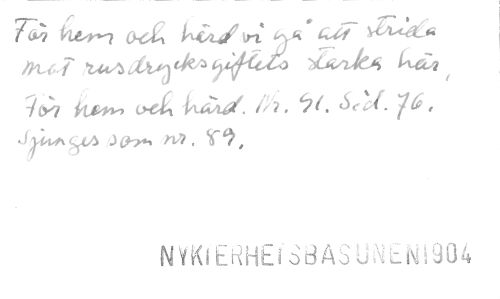 För hem och härd vi gå att strida
mot rusdrycksgiftets starka här,
För hem och härd. Nr. 91. Sid. 76.
Sjunges som nr. 89.
NYKTERHETSBASUNEN 1904